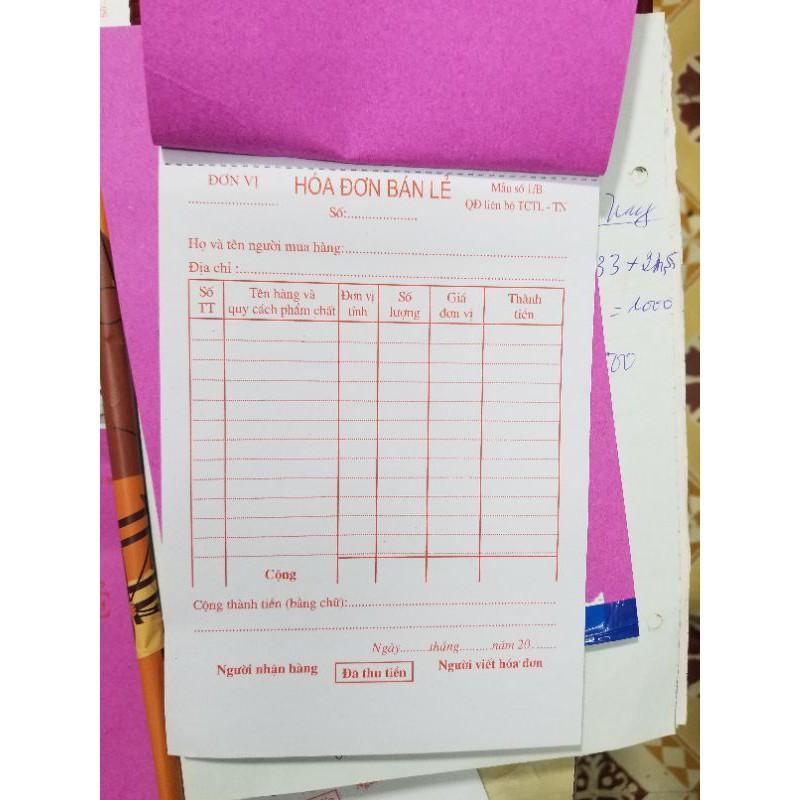 ĐƠN VỊ HÓA ĐƠN BÁN LẺ Mẫu số 1/B
.................... Số:.................. QĐ liên bộ TCTL - TN
Họ và tên người mua hàng:............................
Địa chỉ :............................
Số TT Tên hàng và quy cách phẩm chất Đơn vị tính Số lượng Giá đơn vị Thành tiền
Cộng
Cộng thành tiền (bằng chữ):............................
Ngày........tháng.........năm 20.......
Người nhận hàng Đa thu tiền Người viết hóa đơn
33 +
= 1000
00